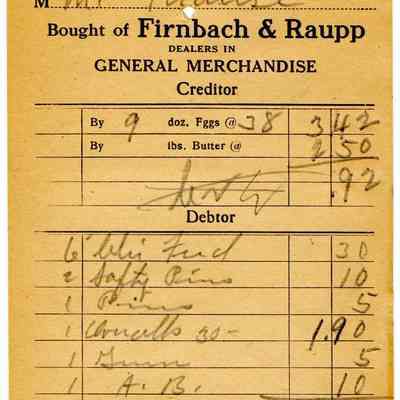 M Mr
Bought of Firnbach & Raupp
DEALERS IN
GENERAL MERCHANDISE
Creditor
By 9 doz. Eggs @ 38 3 42
By lbs. Butter @ 2 50
.92
Debtor
6 Feed 30
2 Safty Pins 10
1 Pins 5
1 30- 1.90
1 Gum 5
1 A. B. 10